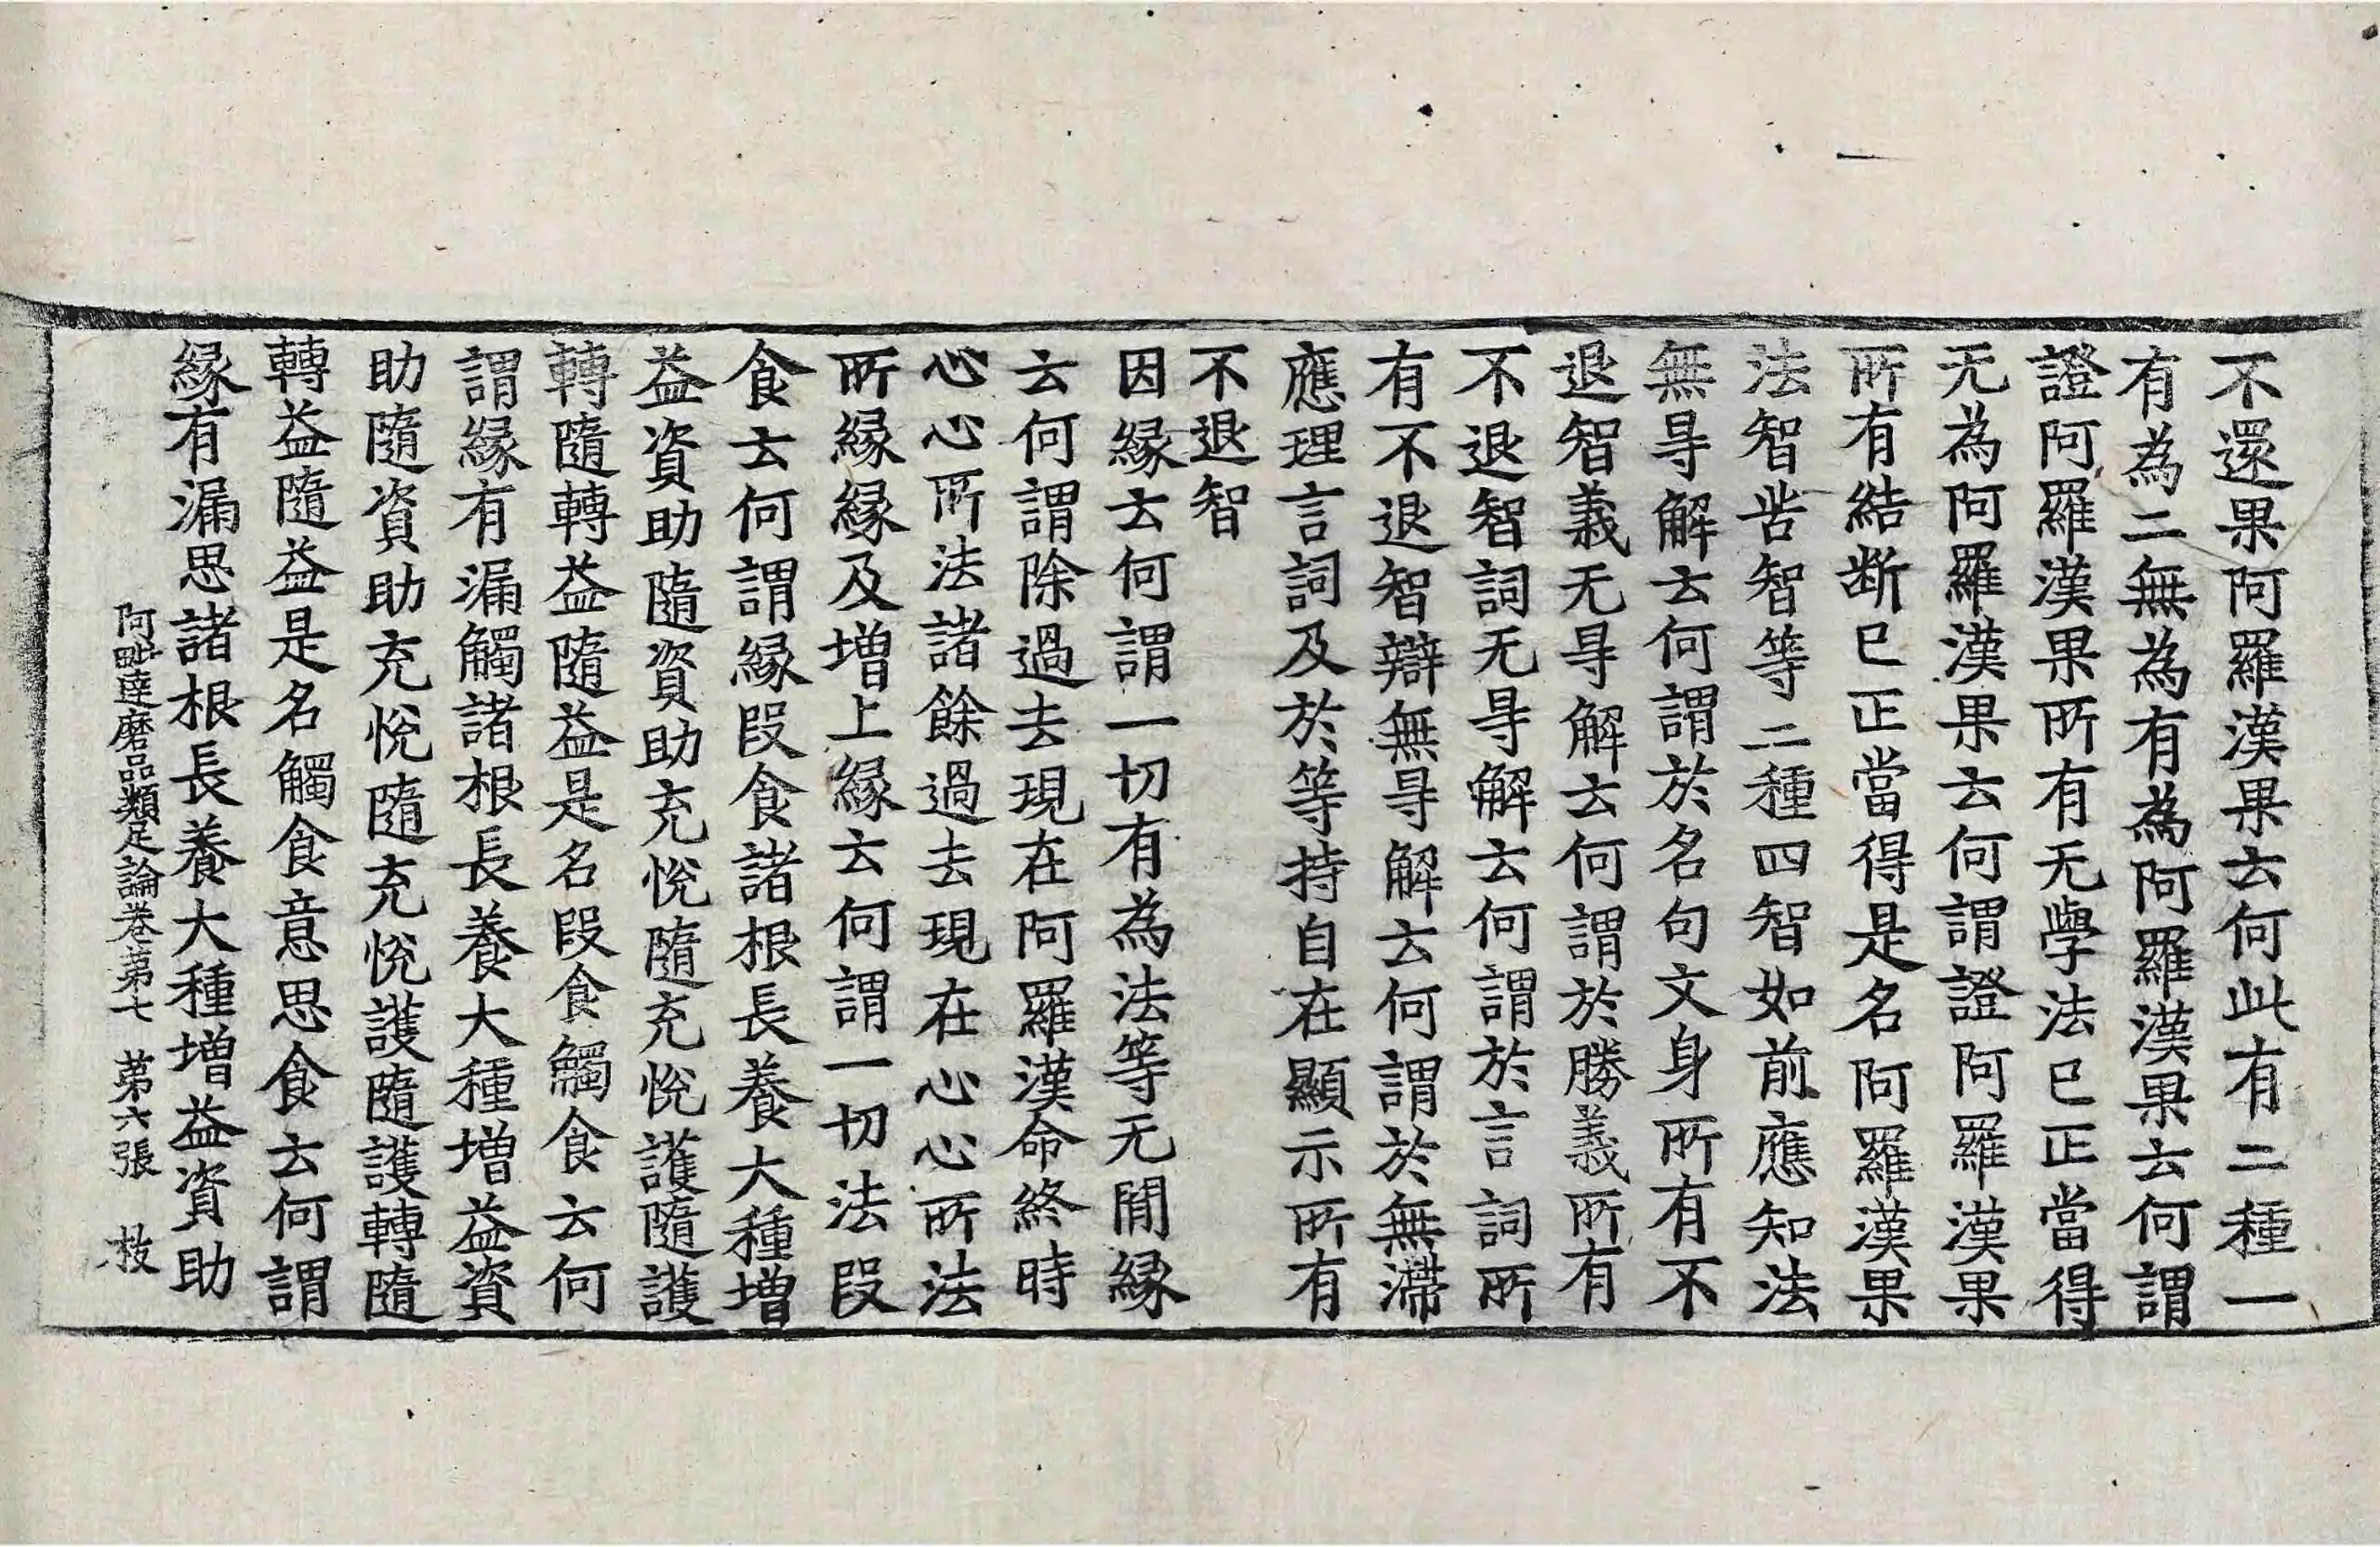 不還果阿羅漢果云何此有二種一
有為二無為有為阿羅漢果云何謂
證阿羅漢果所有无學法已正當得
无為阿羅漢果云何謂證阿羅漢果
所有結断已正當得是名阿羅漢果
法智苦智等二種四智如前應知法
無㝵解云何謂於名句文身所有不
退智義无㝵解云何謂於勝義所有
不退智詞无㝵解云何謂於言詞所
有不退智辯無㝵解云何謂於無滯
應理言詞及於等持自在顯示所有
不退智
因緣云何謂一切有為法等无間緣
云何謂除過去現在阿羅漢命終時
心心所法諸餘過去現在心心所法
所緣緣及增上緣云何謂一切法段
食云何謂緣段食諸根長養大種增
益資助隨資助充悅隨充悅護隨護
轉隨轉益隨益是名段食觸食云何
謂緣有漏觸諸根長養大種增益資
助隨資助充悅隨充悅護隨護轉隨
轉益隨益是名觸食意思食云何謂
緣有漏思諸根長養大種增益資助
阿毗達磨品類足論卷第七 第六張 枝